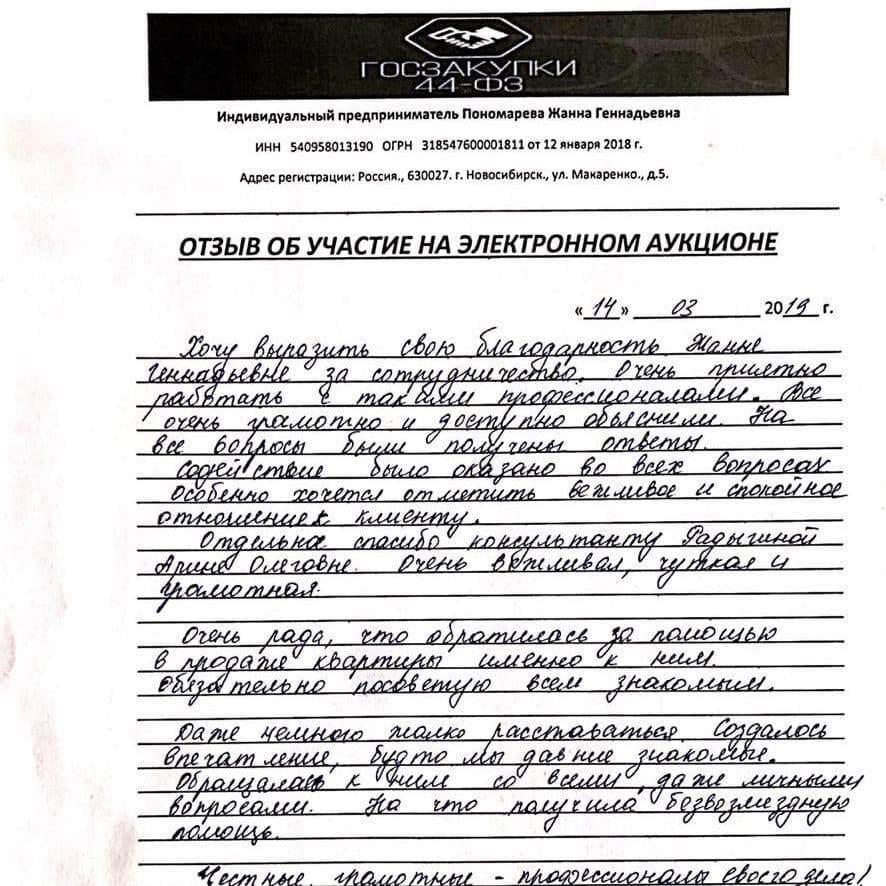 ГОСЗАКУПКИ
44-ФЗ
Индивидуальный предприниматель Пономарева Жанна Геннадьевна
ИНН 540958013190 ОГРН 318547600001811 от 12 января 2018 г.
Адрес регистрации: Россия., 630027. г. Новосибирск., ул. Макаренко., д.5.
ОТЗЫВ ОБ УЧАСТИЕ НА ЭЛЕКТРОННОМ АУКЦИОНЕ
«14» 03 2019 г.
Хочу выразить свою благодарность Жанне
Геннадьевне за сотрудничество. Очень приятно
работать с такими профессионалами. Все
очень грамотно и доступно объяснили. На
все вопросы были получены ответы.
Содействие было оказано во всех вопросах
Особенно хочется отметить вежливое и спокойное
отношение к клиенту.
Отдельна спасибо консультанту Радыгиной
Арине Олеговне. Очень вежливая, чуткая и
грамотная.
Очень рада, что обратилась за помощью
в продаже квартиры именно к ним.
Обязательно посоветую всем знакомым.
Даже немного жалко расставаться. Создалось
впечатление, будто мы давние знакомые.
Обращалась к ним со всеми, даже личными
вопросами. На что получила безвозмездную
помощь.
Честные, грамотные - профессионалы своего дела!